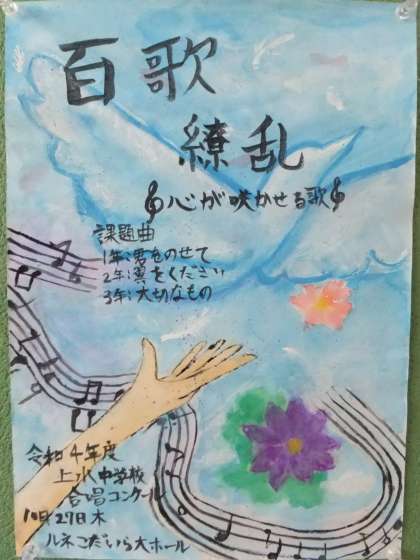 百歌
繚乱
心が咲かせる歌
課題曲
1年:君をのせて
2年:翼をください
3年:大切なもの
令和4年度
上水中学校
合唱コンクール
10月27日木
ルネこだいら大ホール